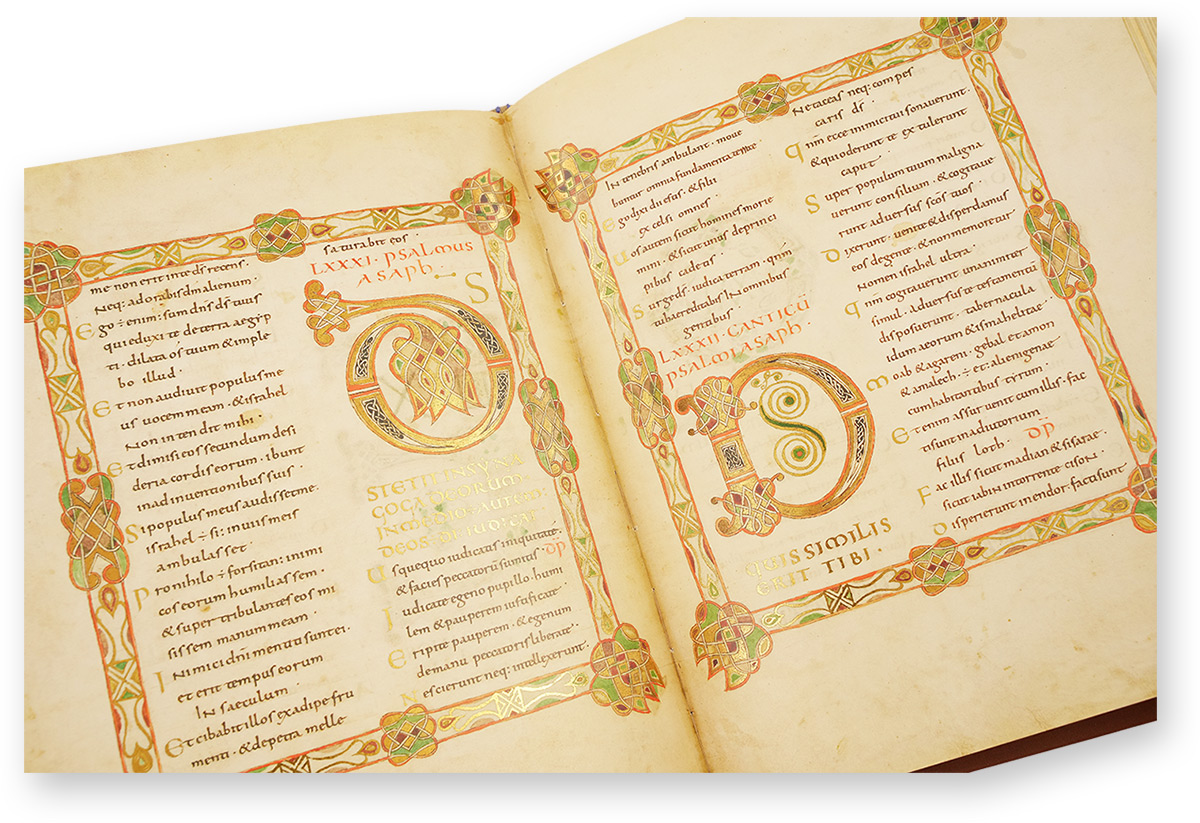 me non erit inte ds recens.
Neq: adorabis dm alienum.
Ego ÷ enim sum dnſ dſ tuus
qui eduxi te deterra aegip
ti. dilata oſ tuum & imple
bo illud.
Et non audiuit populus me
us vocem meam. & israhel
Non inten dit mihi
Et dimisi eos secundum desi
deria cordis eorum. ibunt
in ad inuentionibus suis.
Si populus meus audisset me.
israhel ÷ si: inuiis meis
ambulasset.
Pro nihilo ÷ forsitan: inimi
cos eorum humiliassem.
& super tribulantes eos mi
sissem manum meam.
Inimici dni mentiti sunt ei.
et erit tempus eorum
IN saeculum.
Et cibabit illos ex adipe fru
menti. & depetra melle
saturabit eos.
LXXXI. PSALMUS
ASAPH.
DS
STETIT IN SYNA
GOGA DEORUM
IN MEDIO AUTEM
DEOS DIIUDICAT
Usquequo iudicatis iniquitatē.
& facies peccatorū sumitis. DP
Iudicate egeno pupillo. humi
lem & pauperem iustificate
Eripite pauperem. & egenum
demanu peccatoris liberate.
Nescierunt neq: intellexerunt.
IN tenebris ambulant. moue
buntur omnia fundamenta terrae
Ego dixi dii estis. & filii
excelsi omnes
Uos autem sicut homines morie
mini. & sicut unus deprinci
pibus cadetis
Surge dſ. iudica terram. qm̄
tu haereditabis IN omnibus
gentibus
LXXXII. CANTICŪ
PSALMI ASAPH.
D
QUIS SIMILIS
ERIT TIBI.
Ne taceas neq: compes
caris dſ.
qnm ecce inimici tui sonauerunt.
& qui oderunt te extulerunt
caput
Super populum tuum maligna
uerunt consilium. & cogitaue
runt aduersus scos tuos
Dixerunt. uenite & disperdamus
eos degente. & non memoretur
Nomen israhel ultra.
qnm cogitauerunt unanimiter
simul. aduersus te testamentū
disposuerunt. tabernacula
idumaeorum & ismahelitae
Moab & agareni. gebal et amon
& amalech ÷ et: alienigenae
cum habitantibus tirum.
Etenim assur uenit cum illis. fac
ti sunt in adiutorium
filiis loth. DP
Fac illis sicut madian & sisarae.
sicut iabin intorrente cison.
Disperierunt in endor. facti sunt